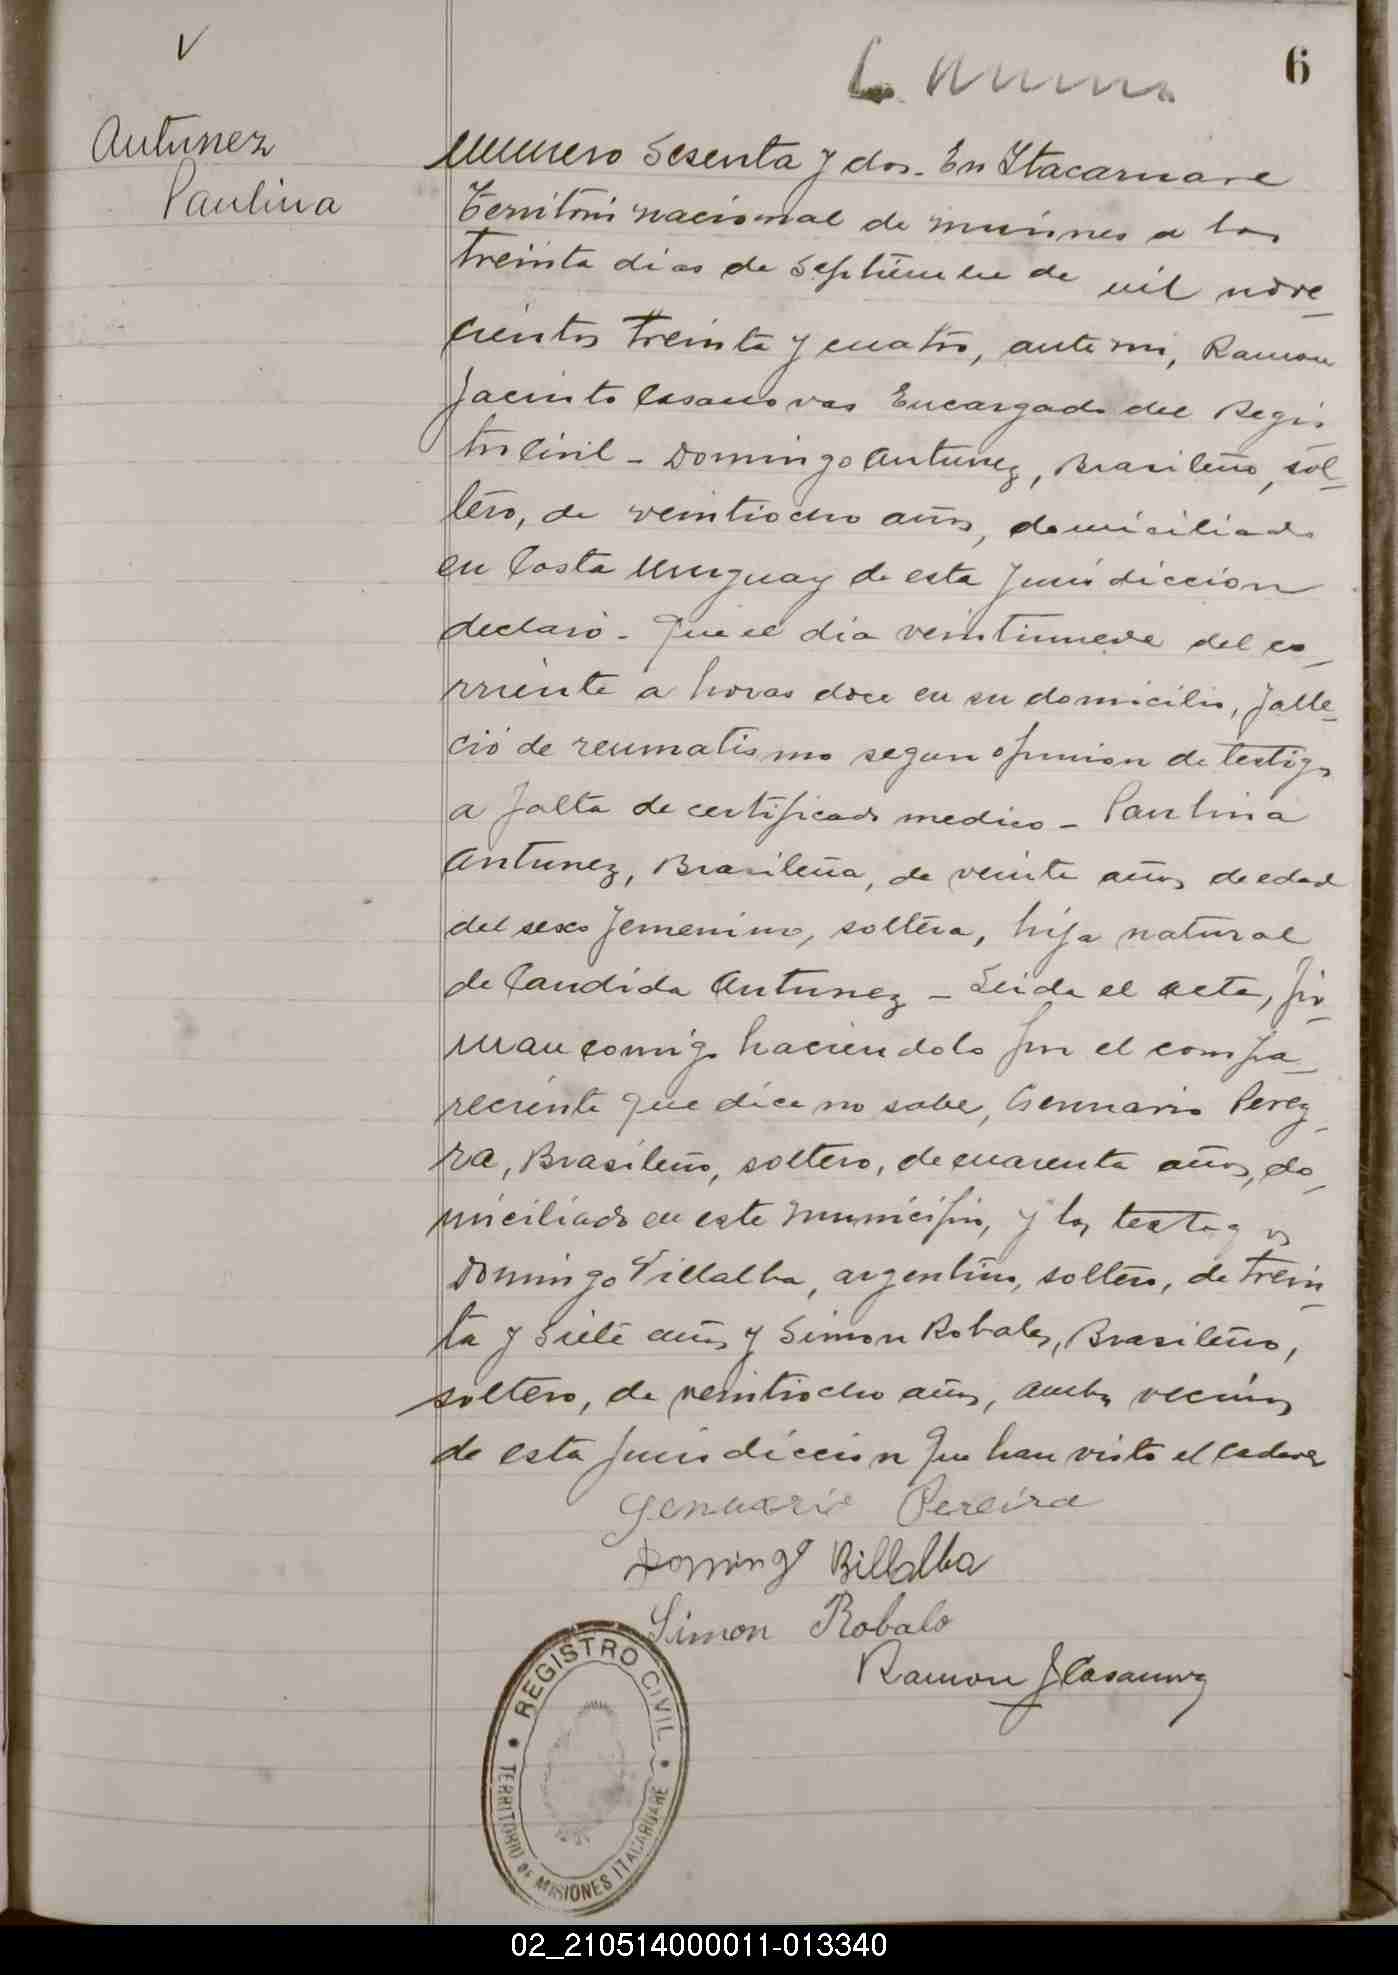 6
Antunez
Paulina
Numero Sesenta y dos. En Itacaruare
Territorio nacional de misiones a los
treinta dias de Septiembre de mil nove-
cientos treinta y cuatro, ante mi, Ramon
Jacinto Casanovas Encargado del Regis-
tro Civil - Domingo Antunez, Brasileño, sol-
tero, de veintiocho años, domiciliado
en Costa Uruguay de esta Jurisdiccion
declaró - Que el dia veintinueve del co-
rriente a horas doce en su domicilio, falle-
ció de reumatismo segun opinion de testigos
a falta de certificado medico - Paulina
Antunez, Brasileña, de veinte años de edad
del sexo femenino, soltera, hija natural
de Candida Antunez - Leida el acta, fir-
man comigo haciendolo por el compa-
reciente que dice no saber, Gennario Perey-
ra, Brasileño, soltero, de cuarenta años, do-
miciliado en este municipio, y los testigos
Domingo Villalba, argentino, soltero, de trein-
ta y siete años y Simon Robalo, Brasileño,
soltero, de veintiocho años, ambos vecinos
de esta Jurisdiccion que han visto el cadaver
Genuario Pereira
Domingo Billalba
Simon Robalo
Ramon J Casanovas
REGISTRO CIVIL
TERRITORIO DE MISIONES ITACARUARE
02_210514000011-013340